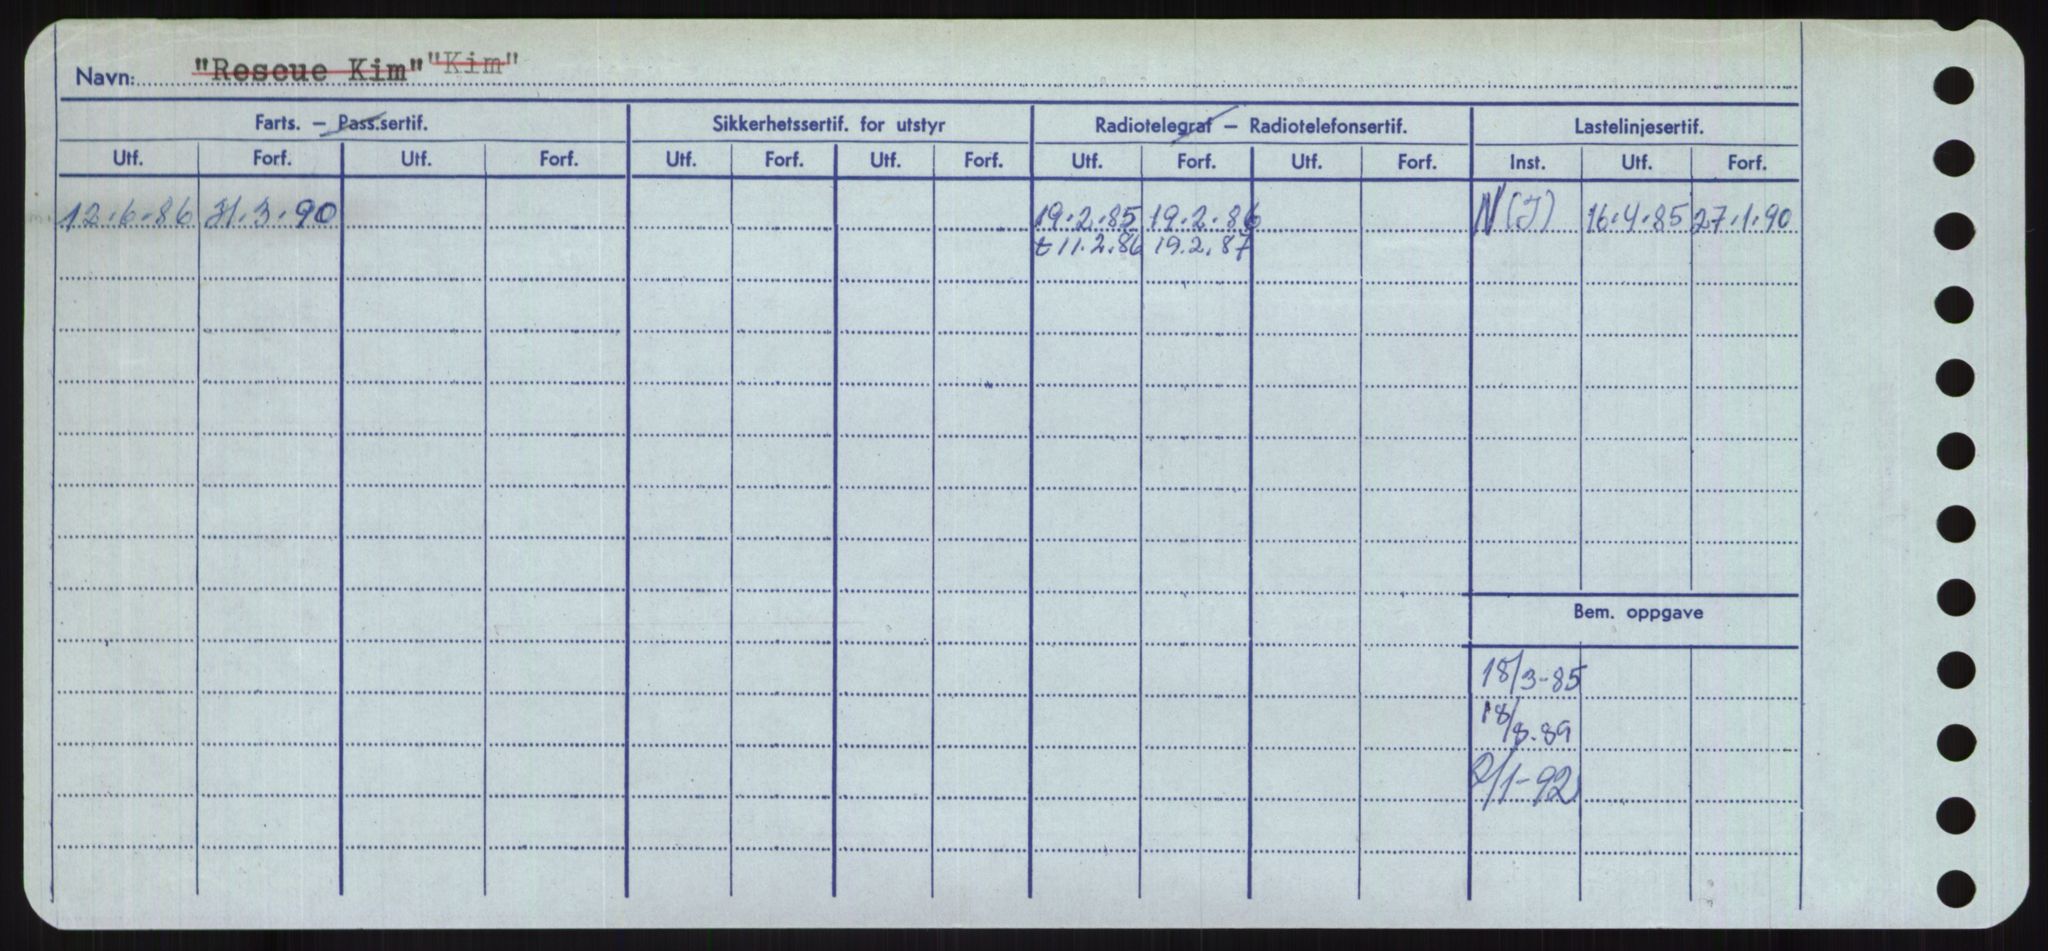 Navn: "Rescue Kim" "Kim"
Farts. — Pass.sertif. Sikkerhetssertif. for utstyr Radiotelegraf — Radiotelefonsertif. Lastelinjesertif.
Utf. Forf. Utf. Forf. Utf. Forf. Utf. Forf. Utf. Forf. Utf. Forf. Inst. Utf. Forf.
12.6.86 31.3.90 19.2.85 19.2.86 N (J) 16.4.85 27.1.90
t 11.2.86 19.2.87
Bem. oppgave
18/3-85
18/8.89
2/1-92